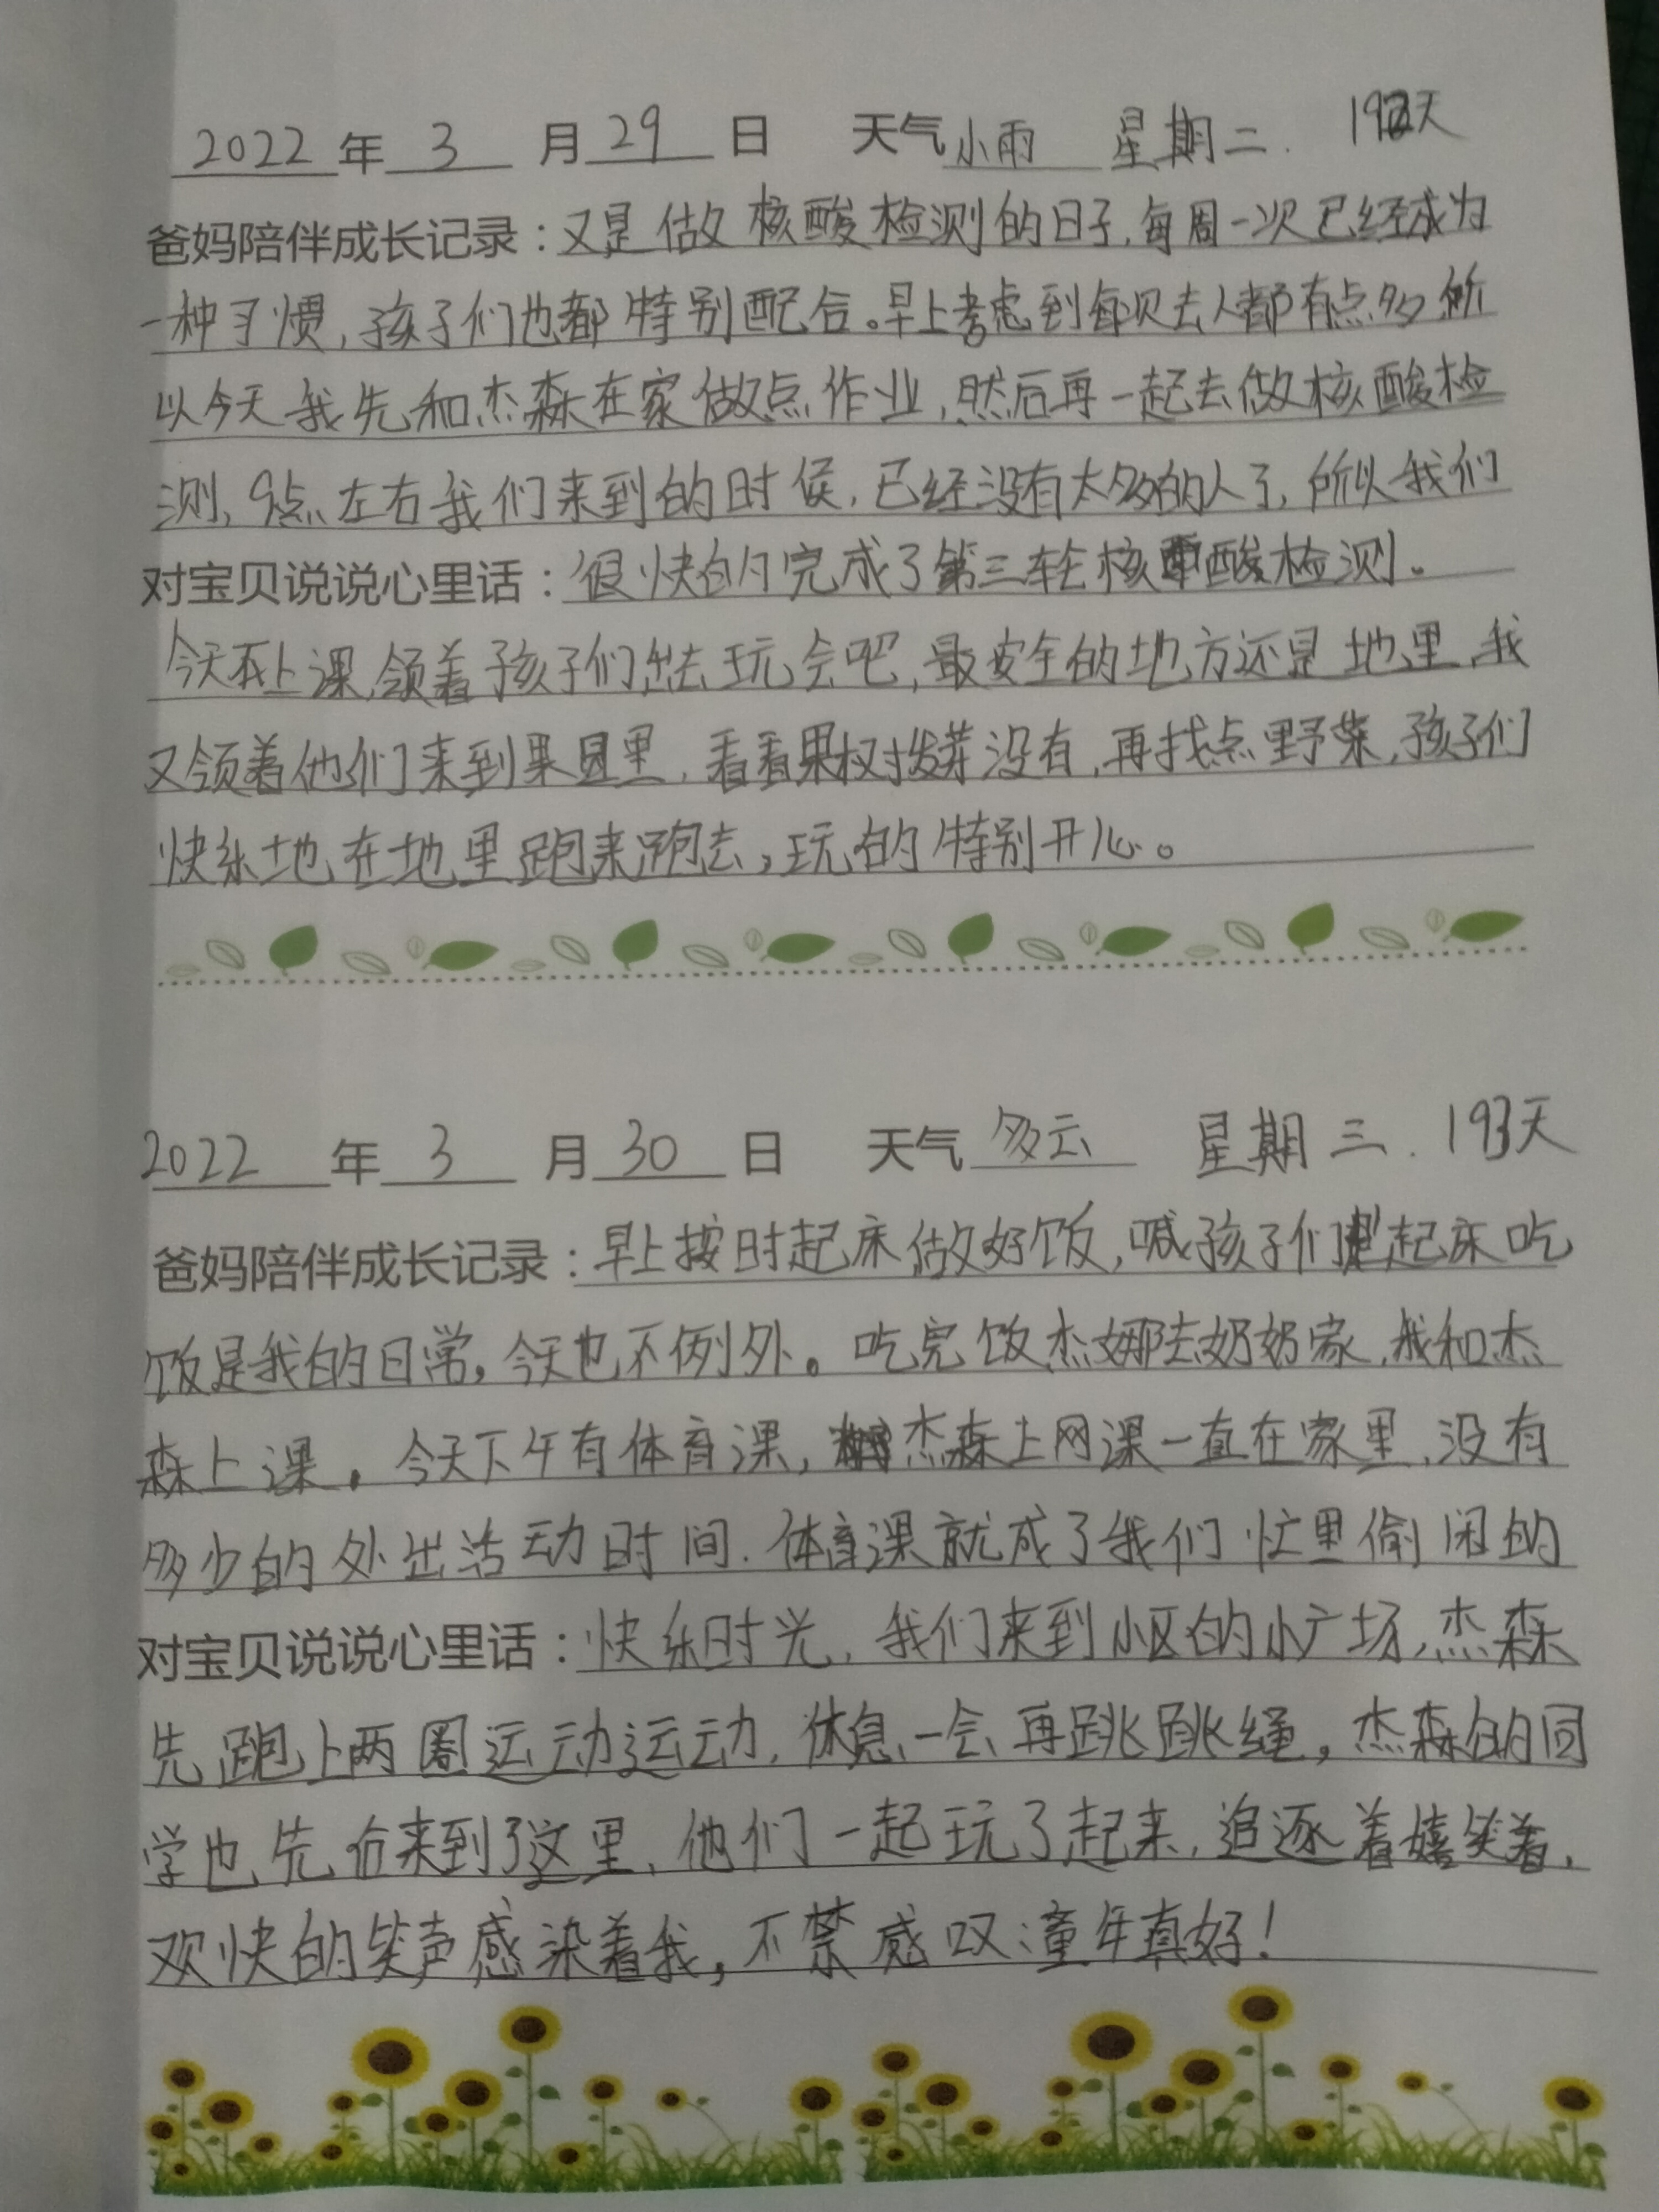 2022年 3 月 29 日 天气 小雨 星期二. 192天
爸妈陪伴成长记录：又是做核酸检测的日子，每周一次已经成为
一种习惯，孩子们也都特别配合。早上考虑到每次去人都有点多所
以今天我先和杰森在家做点作业，然后再一起去做核酸检
测，9点左右我们来到的时候，已经没有太多的人了，所以我们
对宝贝说说心里话：很快的完成了第三轮核酸检测。
今天不上课，领着孩子们出去玩会吧，最安全的地方还是地里，我
又领着他们来到果园里，看看果树发芽没有，再找点野菜，孩子们
快乐地在地里跑来跑去，玩的特别开心。
2022 年 3 月 30 日 天气 多云 星期三. 193天
爸妈陪伴成长记录：早上按时起床做好饭，喊孩子们起床吃
饭是我的日常，今天也不例外。吃完饭杰娜去奶奶家，我和杰
森上课。今天下午有体育课，杰森上网课一直在家里，没有
多少的外出活动时间，体育课就成了我们忙里偷闲的
对宝贝说说心里话：快乐时光，我们来到小区的小广场，杰森
先跑上两圈运动运动，休息一会再跳跳绳，杰森的同
学也先后来到了这里，他们一起玩了起来，追逐着嬉笑着，
欢快的笑声感染着我，不禁感叹童年真好！